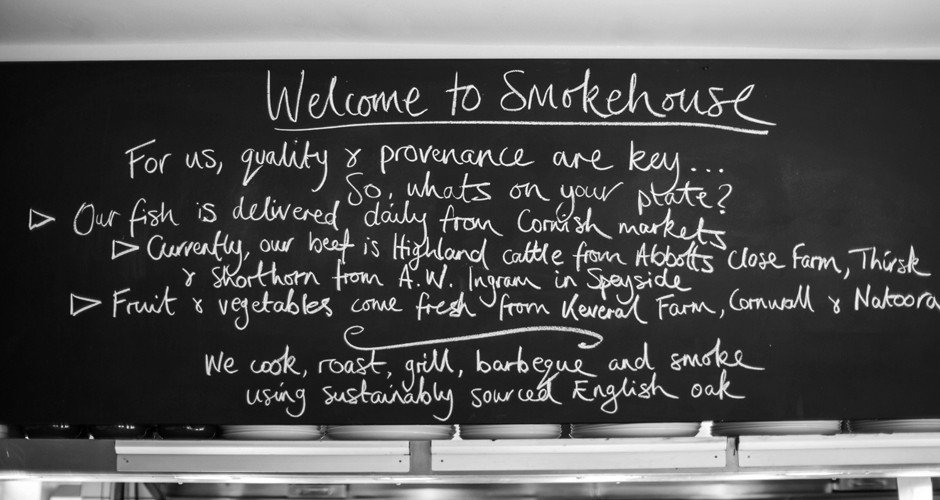 Welcome to Smokehouse
For us, quality & provenance are key...
So, whats on your plate?
▷ Our fish is delivered daily from Cornish markets
▷ Currently, our beef is Highland cattle from Abbotts Close Farm, Thirsk
& Shorthorn from A.W. Ingram in Speyside
▷ Fruit & vegetables come fresh from Keveral Farm, Cornwall & Natoora
We cook, roast, grill, barbeque and smoke
using sustainably sourced English oak